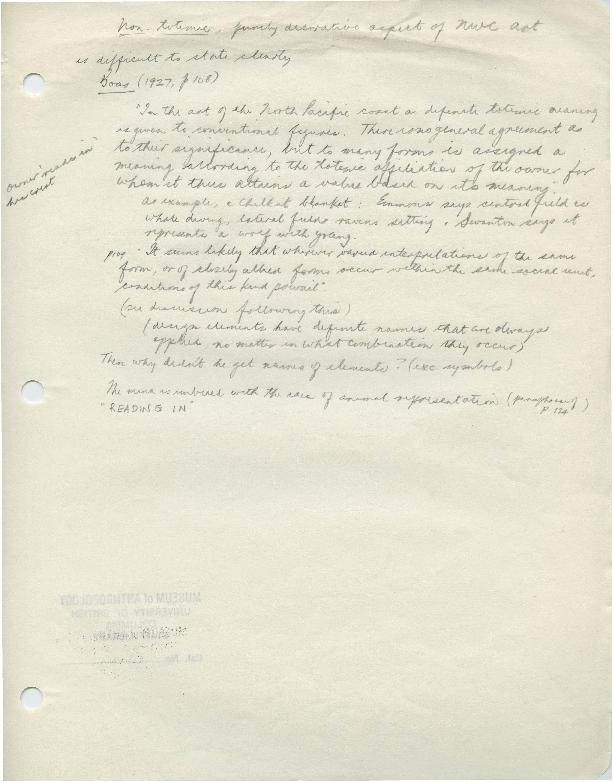 Non-totemic, purely decorative aspect of NWC art
is difficult to state clearly
Boas (1927, p 108)
"In the art of the North Pacific coast a definite totemic meaning
is given to conventional figures. There is no general agreement as
to their significance, but to many forms is assigned a
meaning according to the totemic affiliation of the owner for
whom it thus attains a value based on its meaning.
owner "reads in"
his crest
as example, a Chilkat blanket: Emmons says central field is
whale diving, lateral fields ravens sitting. Swanton says it
represents a wolf with young.
"It seems likely that wherever varied interpretations of the same
form, or of closely allied forms occur within the same social unit,
conditions of this kind prevail"
(see discussion following this)
(design elements have definite names that are always
applied no matter in what combination they occur)
Then why didn't he get names of elements? (exc symbols)
The mind is imbued with the idea of animal representation (paraphrase of
p. 124)
"READING IN"
MUSEUM of ANTHROPOLOGY
UNIVERSITY OF BRITISH
COLUMBIA
Cat. No.